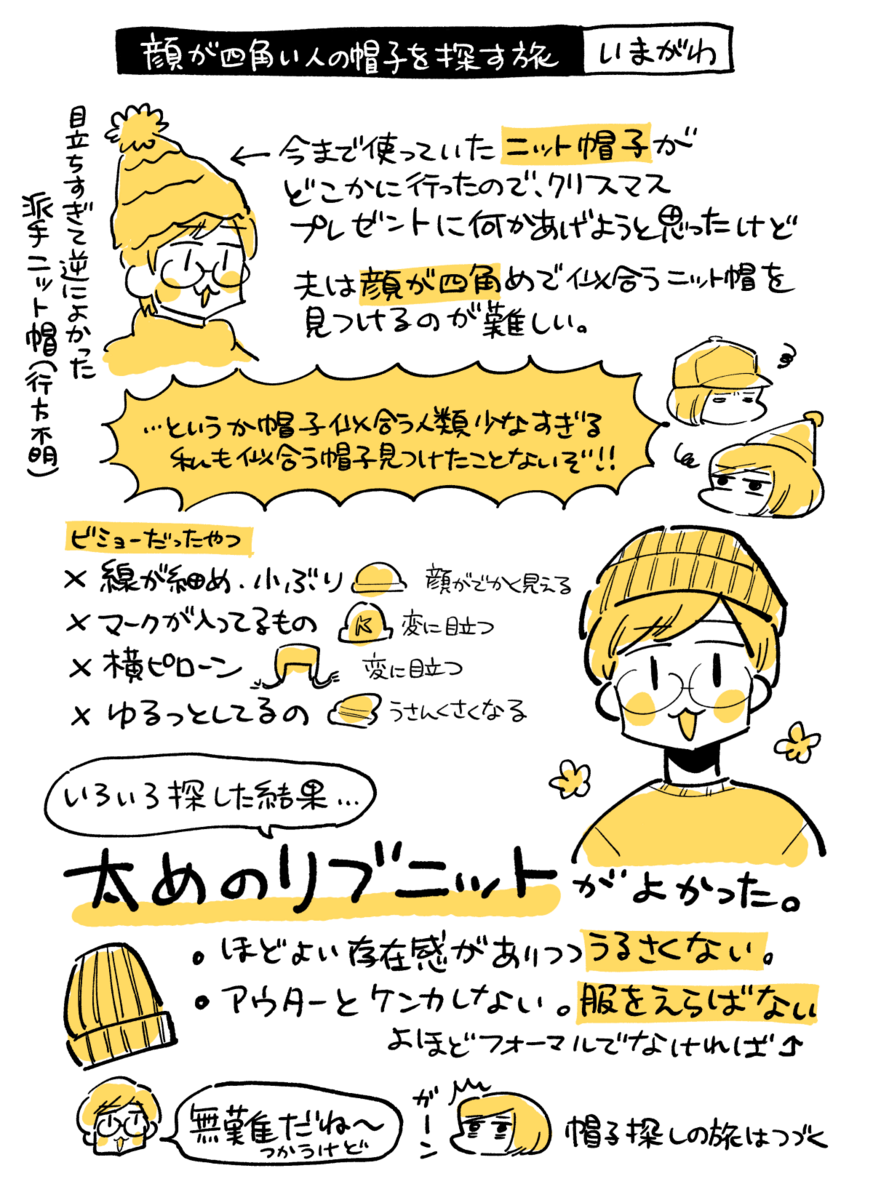 顔が四角い人の帽子を探す旅 いまがわ
目立ちすぎて逆によかった
派手ニット帽(行方不明)
← 今まで使っていたニット帽子が
どこかに行ったので、クリスマス
プレゼントに何かあげようと思ったけど
夫は顔が四角めで似合うニット帽を
見つけるのが難しい。
…というか帽子似合う人類少なすぎる
私も似合う帽子見つけたことないぞ!!
ビミョーだったやつ
× 線が細め・小ぶり 顔がでかく見える
× マークが入ってるもの K 変に目立つ
× 横ピローン 変に目立つ
× ゆるっとしてるの うさんくさくなる
いろいろ探した結果…
太めのリブニットがよかった。
。ほどよい存在感がありつつうるさくない。
。アウターとケンカしない。服をえらばない
よほどフォーマルでなければ↑
無難だね〜
つかうけど
ガーン
帽子探しの旅はつづく